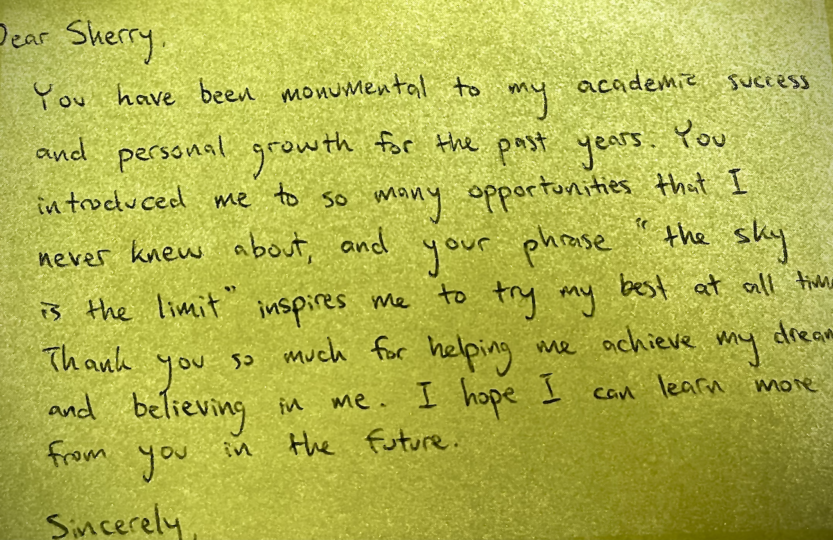 Dear Sherry,
You have been monumental to my academic success
and personal growth for the past years. You
introduced me to so many opportunities that I
never knew about, and your phrase "the sky
is the limit" inspires me to try my best at all
Thank you so much for helping me achieve my
and believing in me. I hope I can learn more
from you in the future.
Sincerely,